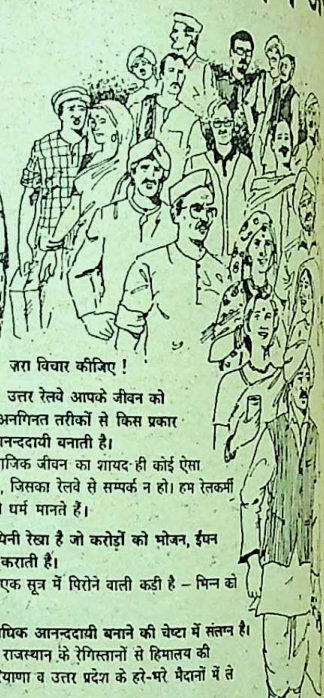 ज़रा विचार कीजिए !
उत्तर रेलवे आपके जीवन को
अनगिनत तरीकों से किस प्रकार
नन्ददायी बनाती है।
जिक जीवन का शायद ही कोई ऐसा
, जिसका रेलवे से सम्पर्क न हो। हम रेलकर्मी
धर्म मानते हैं।
यिनी रेखा है जो करोड़ों को भोजन, ईंधन
कराती है।
एक सूत्र में पिरोने वाली कड़ी है – भिन्न को
धिक आनन्ददायी बनाने की चेष्टा में संलग्न है।
राजस्थान के रेगिस्तानों से हिमालय की
याणा व उत्तर प्रदेश के हरे-भरे मैदानों में ले